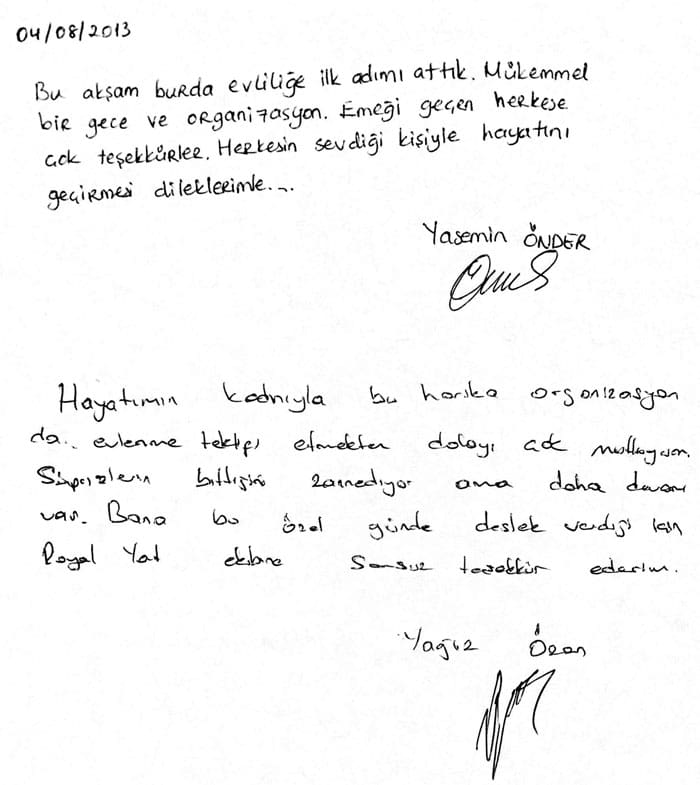 04/08/2013
Bu akşam burda evliliğe ilk adımı attık. Mükemmel
bir gece ve organizasyon. Emeği geçen herkese
çok teşekkürler. Herkesin sevdiği kişiyle hayatını
geçirmesi dileklerimle...
Yasemin ÖNDER
Hayatımın kadnıyla bu harika organizasyon
da.. evlenme teklifi etmekten dolayı çok mutluyum.
Sürprizlerin bittiğini zannediyor ama daha devamı
var. Bana bu özel günde destek verdiği için
Royal Yat ekibine Sonsuz teşekkür ederim.
Yağız Özan